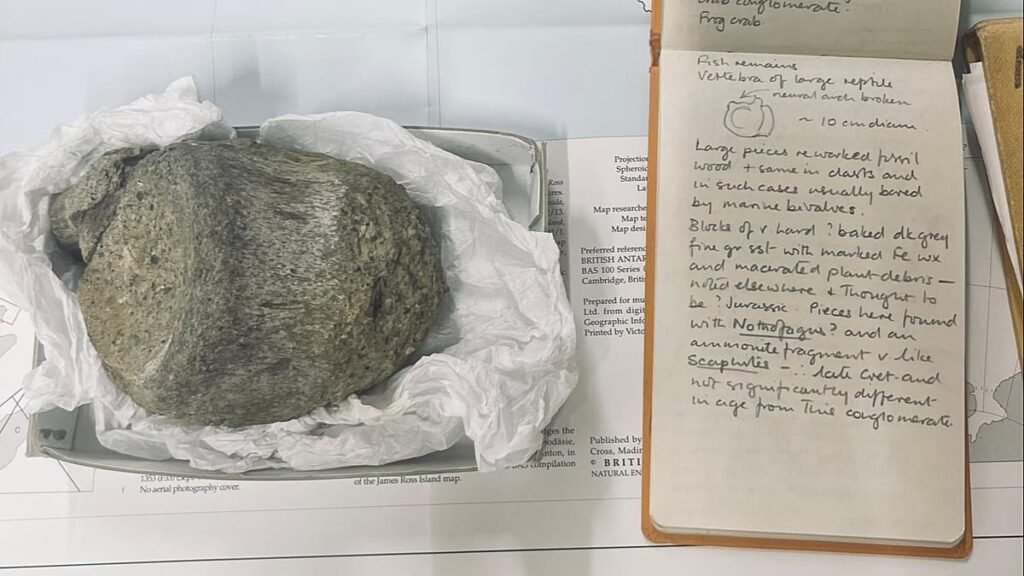 Crab conglomerate?
Frog crab
Fish remains
Vertebra of large reptile
neural arch broken
~ 10 cm diam.
Large pieces reworked fossil
wood + same in clasts and
in such cases usually bored
by marine bivalves.
Blocks of v. hard ? baked dk grey
fine gr sst with marked Fe wx
and macerated plant debris —
noted elsewhere & thought to
be ? Jurassic. Pieces here found
with Nothofagus? and an
ammonite fragment v. like
Scaphites — ∴ late Cret and
not significantly different
in age from this conglomerate.
Projection
Spheroid
Standa
La
Map researche
Map te
Map desi
Preferred referenc
BRITISH ANTAR
BAS 100 Series
Cambridge, Briti
Prepared for
Ltd. from digit
Geographic Info
Printed by Victo
Ross
/13.
Published by
Cross, Madin
© BRITI
NATURAL EN
ges the
odäsie,
nton, in
compilation
No aerial photography cover.
of the James Ross Island map.